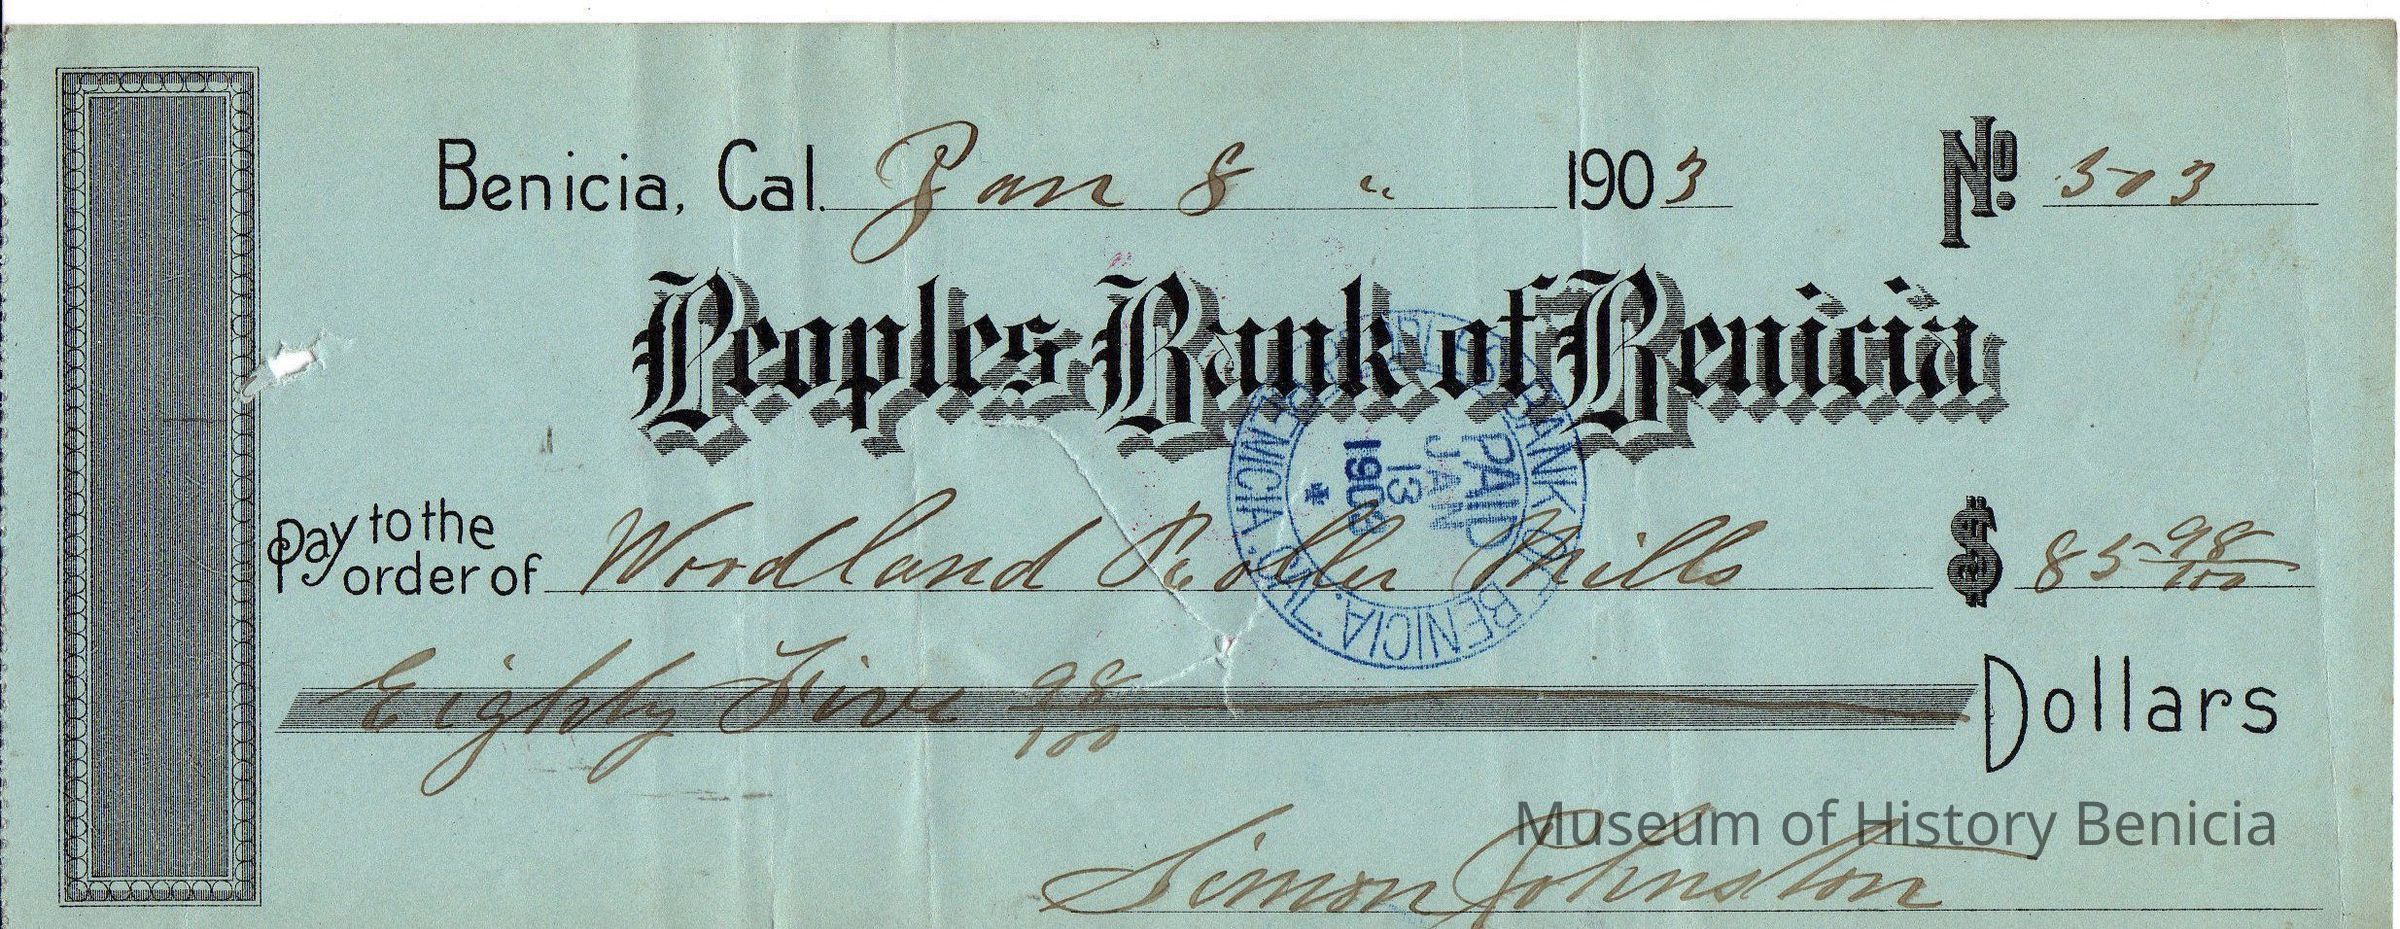 Benicia, Cal. Jan 8 " 1903 No. 303
Peoples Bank of Benicia
PEOPLES BANK OF BENICIA. BENICIA.
PAID
JAN
13
1903
*
Pay to the order of Woodland Roller Mills $ 85 98/100
Eighty Five 98/100 Dollars
Museum of History Benicia
Simon Johnston